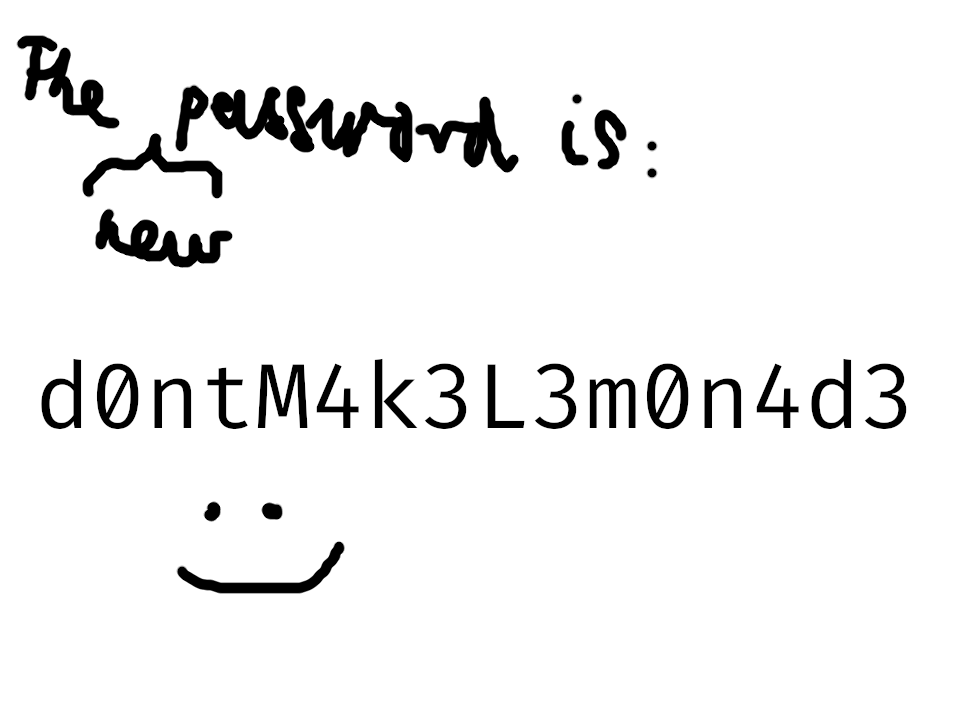 The new password is:
d0ntM4k3L3m0n4d3